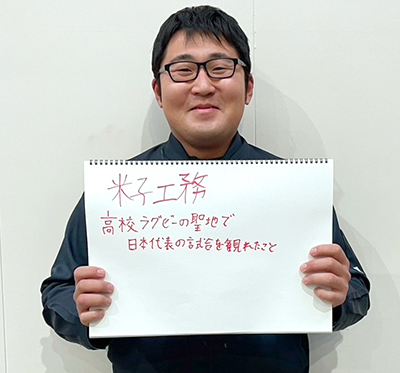 米子工務
高校ラグビーの聖地で
日本代表の試合を観れたこと